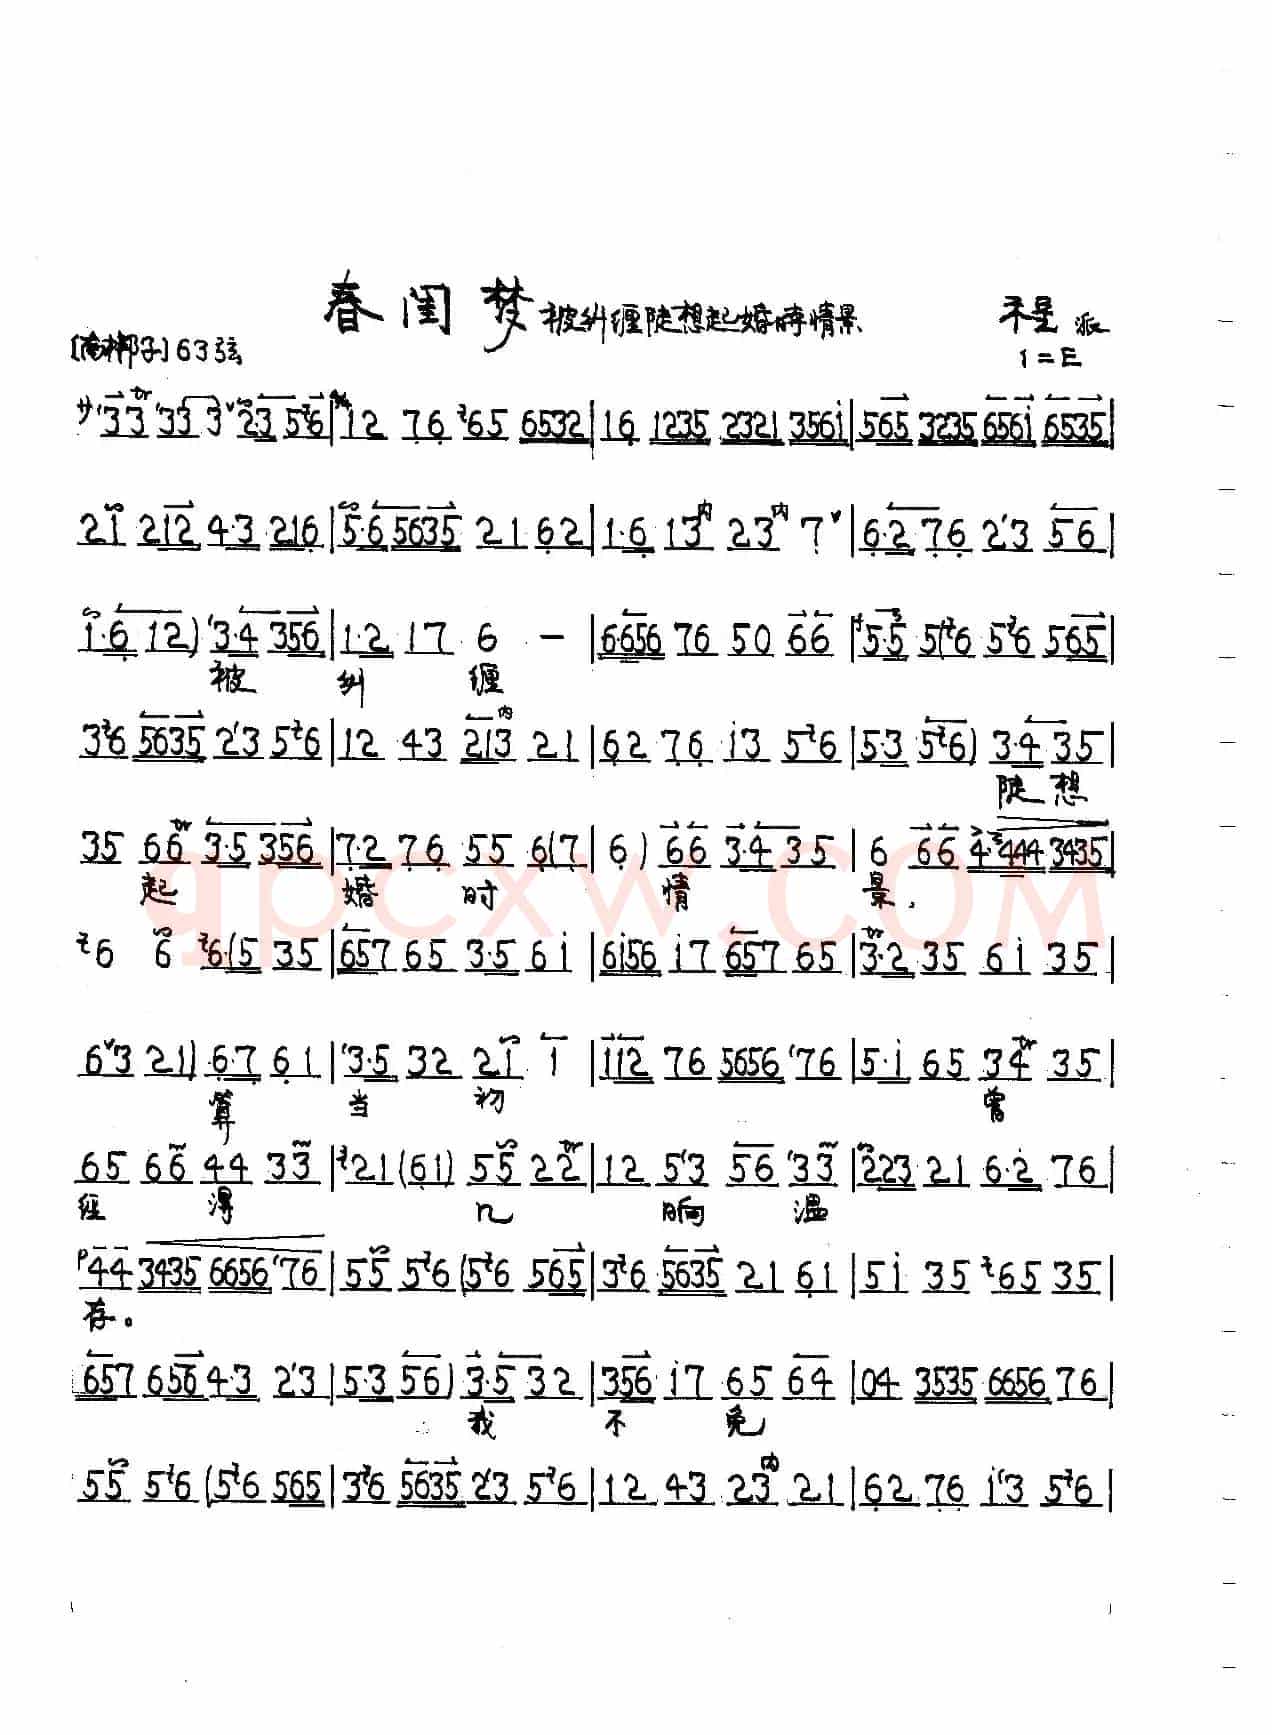 春闺梦 被纠缠陡想起婚时情景 程派
〔南梆子〕63弦 1=E
33 33 3 23 56 | 12 76 65 6532 | 16 1235 2321 3561 | 565 3235 6561 6535 |
21 212 4·3 216 | 5·6 5635 21 62 | 1·6 13内 23内 7 | 6·2 76 23 56 |
1·6 12) 3·4 356 | 1·2 17 6 — | 6656 76 50 66 | 5·5 5(6 56 565 |
被 纠 缠
36 5635 23 56 | 12 43 213内 21 | 62 76 13 56 | 5·3 56) 3·4 35 |
陡 想
35 66 3·5 356 | 7·2 76 55 6(7 | 6) 66 3·4 35 | 6 66 4·444 3435 |
起 婚 时 情 景,
qpcxw.com
6 6 6·(5 35 | 657 65 3·5 61 | 6156 17 657 65 | 3·2 35 61 35 |
63 21) 6·7 61 | 3·5 32 21 1 | 112 76 5656 76 | 5·1 65 34 35 |
算 当 初 曾
65 66 44 33 | 21 (61) 55 22 | 12 53 56 33 | 223 21 6·2 76 |
经 得 几 晌 温
P44 3435 6656 76 | 55 56 (56 565 | 36 5635 21 61 | 51 35 65 35 |
存。
657 656 4·3 23 | 5·3 56) 3·5 32 | 356 17 65 64 | 04 3535 6656 76 |
我 不 免
55 56 (56 565 | 36 5635 23 56 | 12 43 23内 21 | 62 76 13 56 |